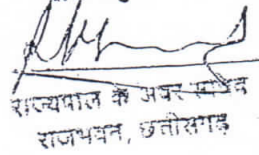 राज्यपाल के अवर सचिव
राजभवन, छत्तीसगढ़